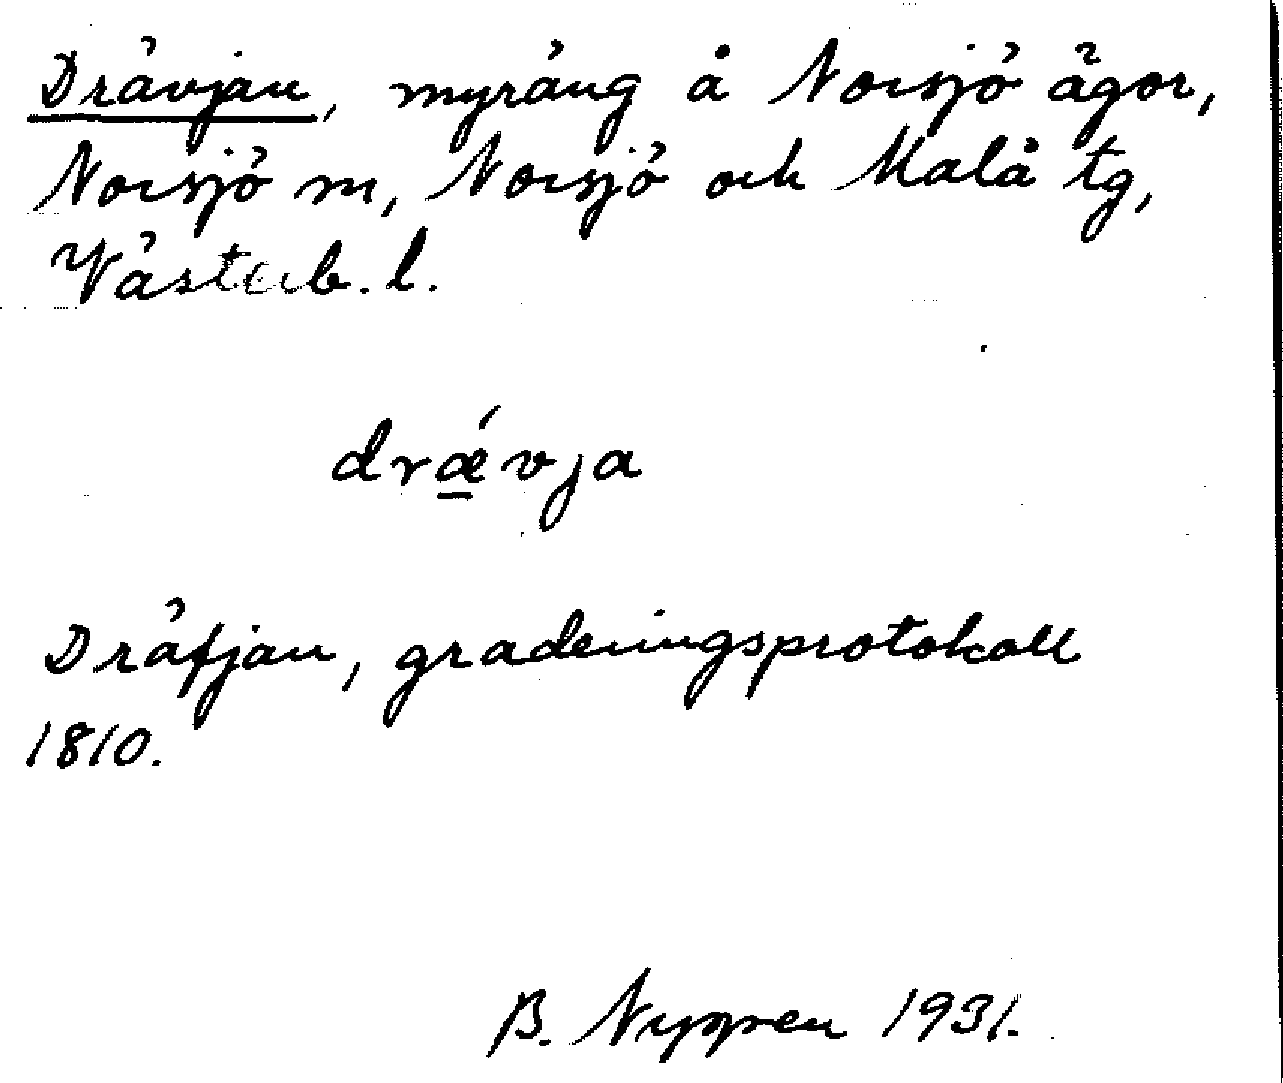 Drävjan, myräng å Norsjö ägor,
Norsjö sn, Norsjö och Malå tg,
Västerb. l.
drǽvja
Dräfjan, graderingsprotokoll
1810.
B. Nygren 1931.